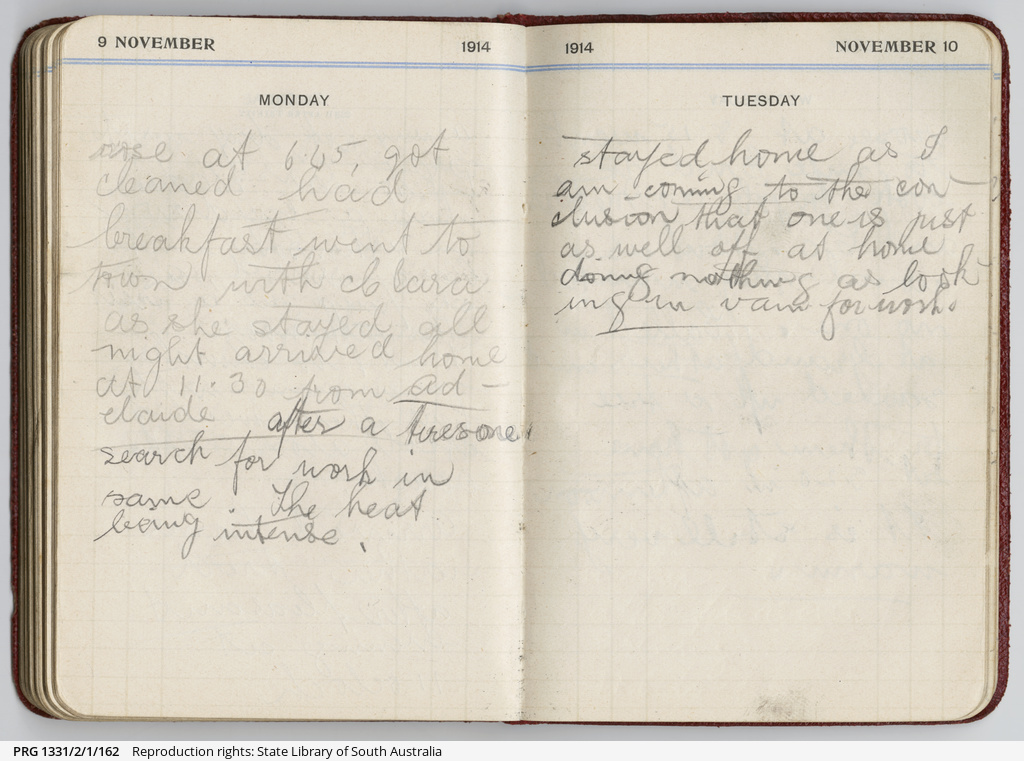 9 NOVEMBER 1914
MONDAY
rose at 6.45, got
cleaned had
breakfast went to
town with clara
as she stayed all
night arrived home
at 11.30 from ad-
elaide after a tiresome
search for work in
same. The heat
being intense.
1914 NOVEMBER 10
TUESDAY
stayed home as I
am coming to the con-
clusion that one is just
as well off at home
doing nothing as look-
ing in vain for work.
PRG 1331/2/1/162 Reproduction rights: State Library of South Australia